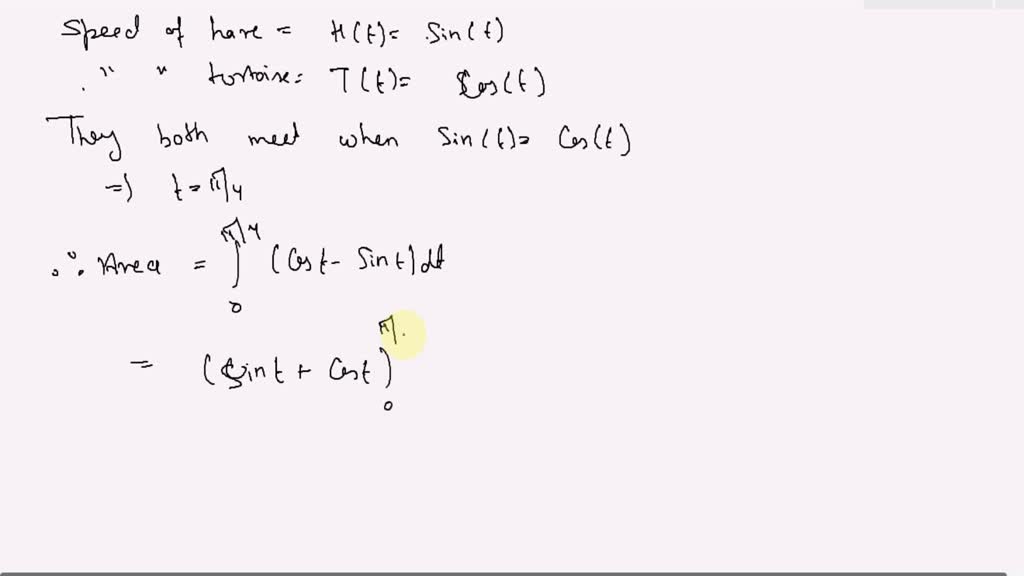 Speed of hare = H(t)= Sin(t)
" " tortoise= T(t)= Cos(t)
They both meet when Sin(t)= Cos(t)
=) t = π/4
∴ Area = ∫₀^π/4 (Cost - Sint)dt
= (Sint + Cost)₀^π/.